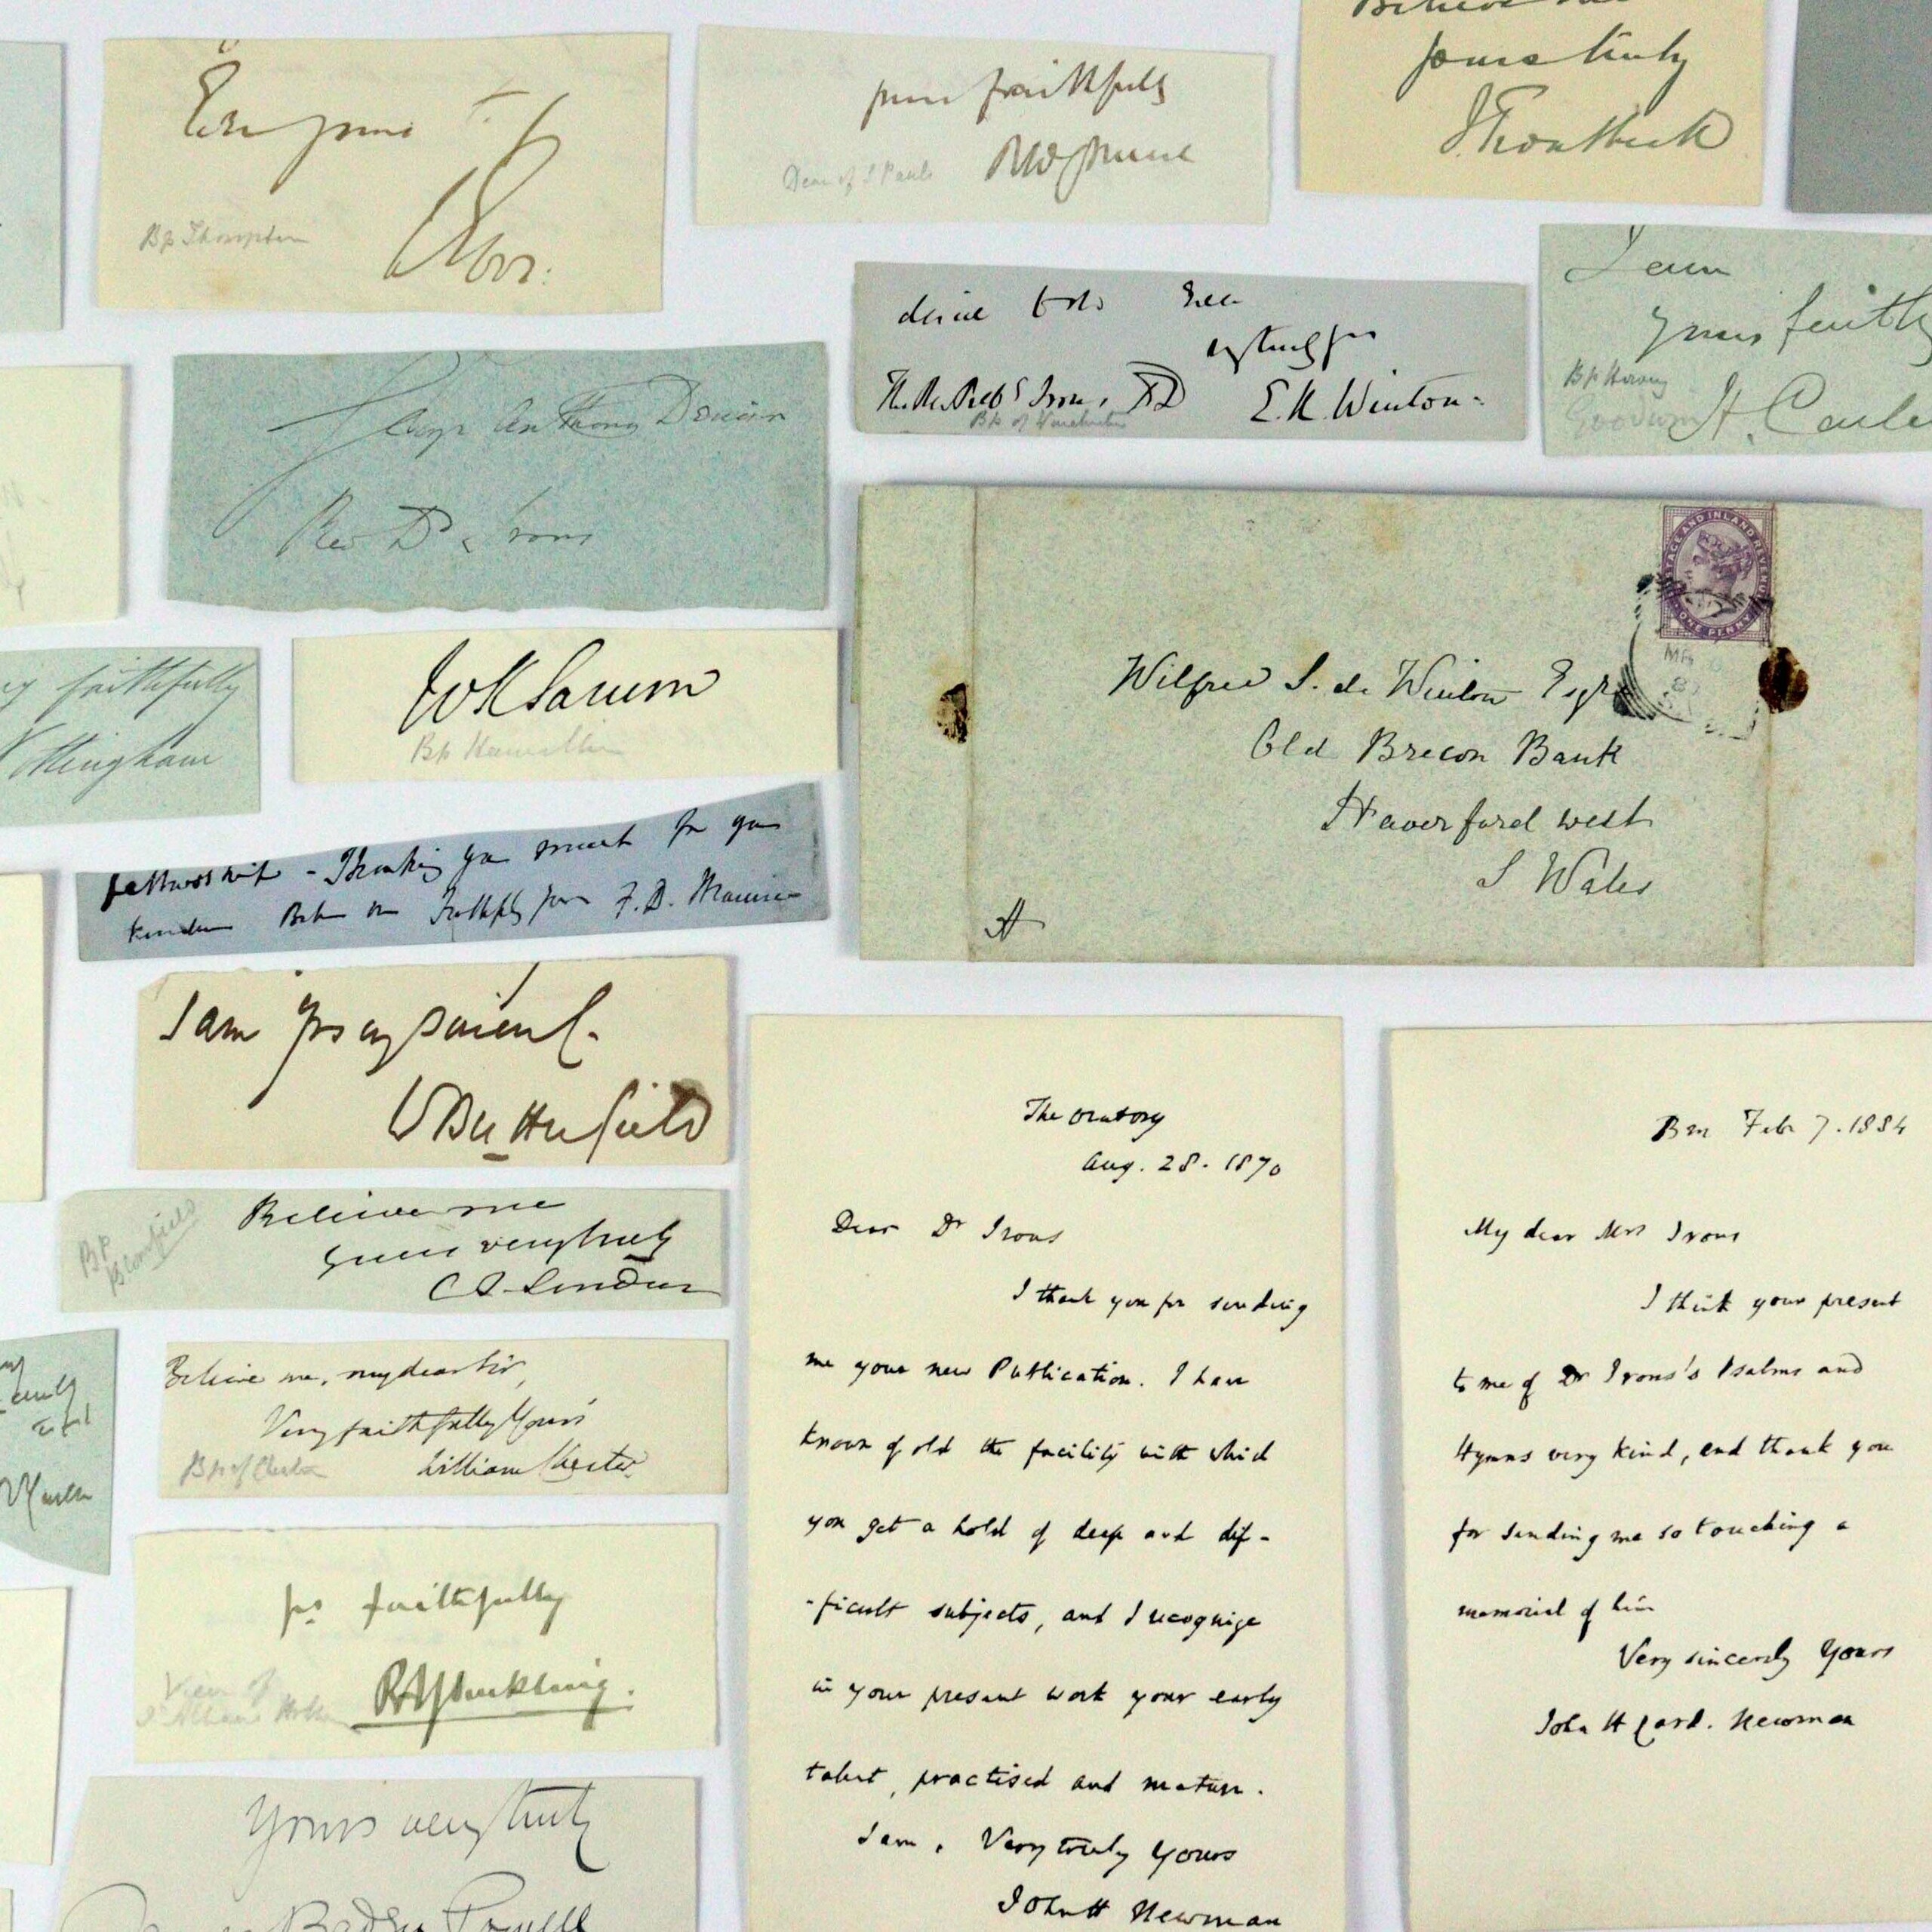 Believe me
yours truly
J Troutbeck
Ever yours
Bp Thompson
yours faithfully
Dean of S Pauls
I am
yours faith
Bp Harvey
Goodwin H. Carl
desire to
E. H. Winton.
Bp of Winchester
George Anthony Denison
Rev Dr Irons
W K Sarum
Bp Hamilton
faithfully
ttingham
POSTAGE AND INLAND REVENUE
ONE PENNY
Wilfred S. de Winton Esqre
Old Brecon Bank
Haverford west
S Wales
A
- Thanking you much for your
kindness Believe me faithfully yours F. D. Maurice
I am yrs very sincerely
W Butterfield
Bp Blomfield
Believe me
yours very truly
C J London
Believe me, my dear Sir,
Very faithfully Yours
Bp of Chester
William Chester
yrs faithfully
Vicar of
S Albans Holborn
R A J Suckling.
Yours very truly
Baden Powell
The Oratory
Aug. 28. 1870
Dear Dr Irons
I thank you for sending
me your new Publication. I have
known of old the facility with which
you get a hold of deep and dif-
-ficult subjects, and I recognize
in your present work your early
talent, practised and mature.
I am, Very truly Yours
John H Newman
Bm Feb 7. 1884
My dear Mrs Irons
I think your present
to me of Dr Irons's Psalms and
Hymns very kind, and thank you
for sending me so touching a
memorial of him
Very sincerely Yours
John H Card. Newman